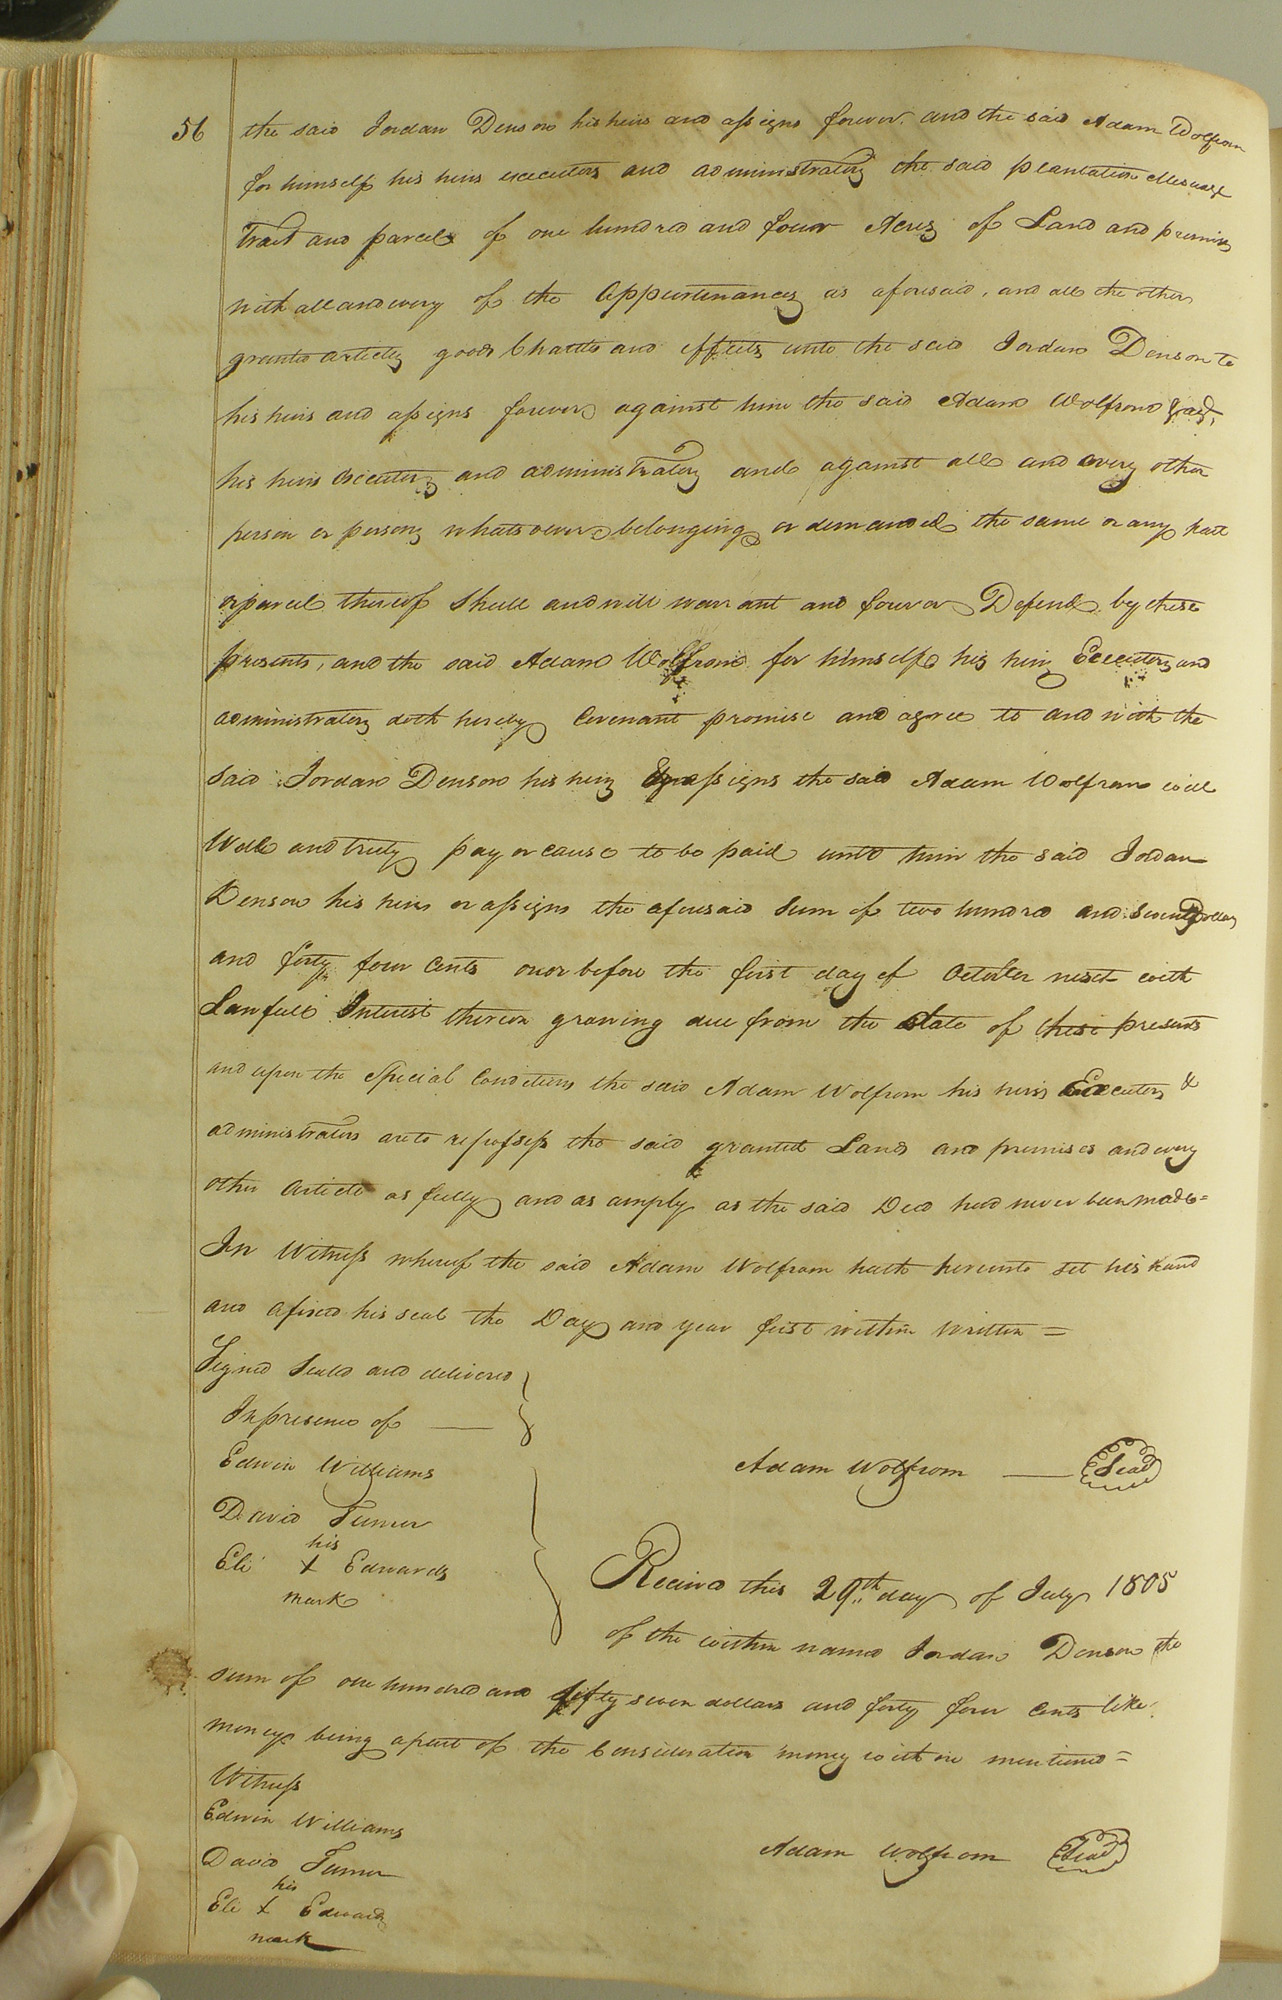 56
the said Jordan Denson his heirs and assigns forever. and the said Adam Wolfrom
for himself his heirs executors and administrators the said plantation Messuage
Tract and parcel of one hundred and four Acres of Land and premises
with all and every of the Appurtenances as aforesaid, and all the other
granted articles goods Chattles and effects unto the said Jordan Denson to
his heirs and assigns forever against him the said Adam Wolfrom
his heirs executors and administrators and against all and every other
person or persons whatsoever belonging or demanded the same or any part
or parcel thereof Shall and will warrant and forever Defend by these
presents, and the said Adam Wolfrom for himself his heirs Executors and
administrators doth hereby Covenant promise and agree to and with the
said Jordan Denson his heirs assigns the said Adam Wolfrom will
Well and truly pay or cause to be paid unto him the said Jordan
Denson his heirs or assigns the aforesaid Sum of two hundred and seventy Dollars
and forty four Cents on or before the first day of October next with
Lawfull Interest thereon growing due from the date of these presents
and upon the Special Conditions the said Adam Wolfrom his heirs Executors &
administrators are to repossess the said granted Land and premises and every
other Article as fully and as amply as the said Deed had never been made =
In Witness whereof the said Adam Wolfrom hath hereunto set his hand
and afixed his seal the Day and year first within written =
Signed Sealed and delivered
In presence of
Edwin Williams
Adam Wolfrom Seal
David Turner
his
Eli X Edwards
mark
Received this 29th day of July 1805
of the within named Jordan Denson the
sum of one hundred and fifty seven dollars and forty four Cents like
money being a part of the Consideration money within mentioned =
Witness
Edwin Williams
David Turner
Adam Wolfrom Seal
his
Eli X Edwards
mark